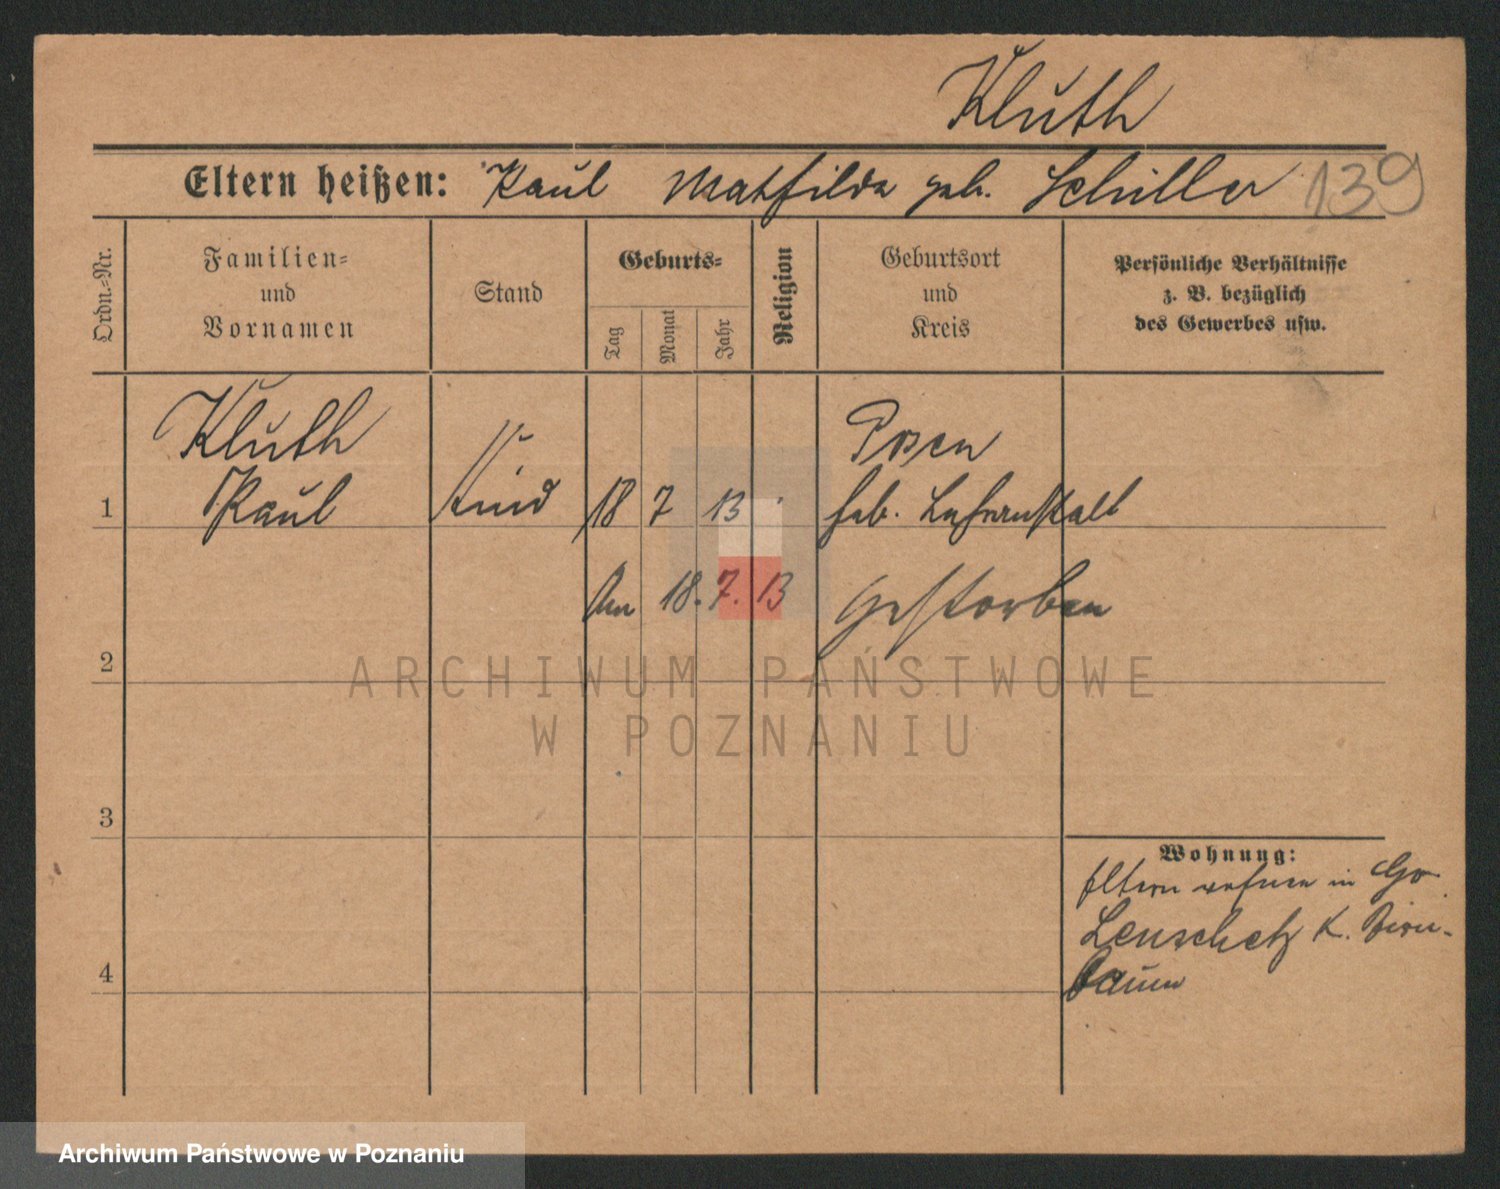 Kluth
Eltern heißen: Paul Mathilde geb. Schiller 139
Ordn.=Nr.
Familien=
und
Vornamen
Stand
Geburts=
Tag
Monat
Jahr
Religion
Geburtsort
und
Kreis
Persönliche Verhältnisse
z. B. bezüglich
des Gewerbes usw.
Kluth
Posen
1 Paul Kind 18 7 13 heb. Lehranstalt
Am 18.7.13 gestorben
2
ARCHIWUM PAŃSTWOWE
W POZNANIU
3
Wohnung:
Eltern wohnen in Gr.
Lenschetz K. Birn-
baum
4
Archiwum Państwowe w Poznaniu